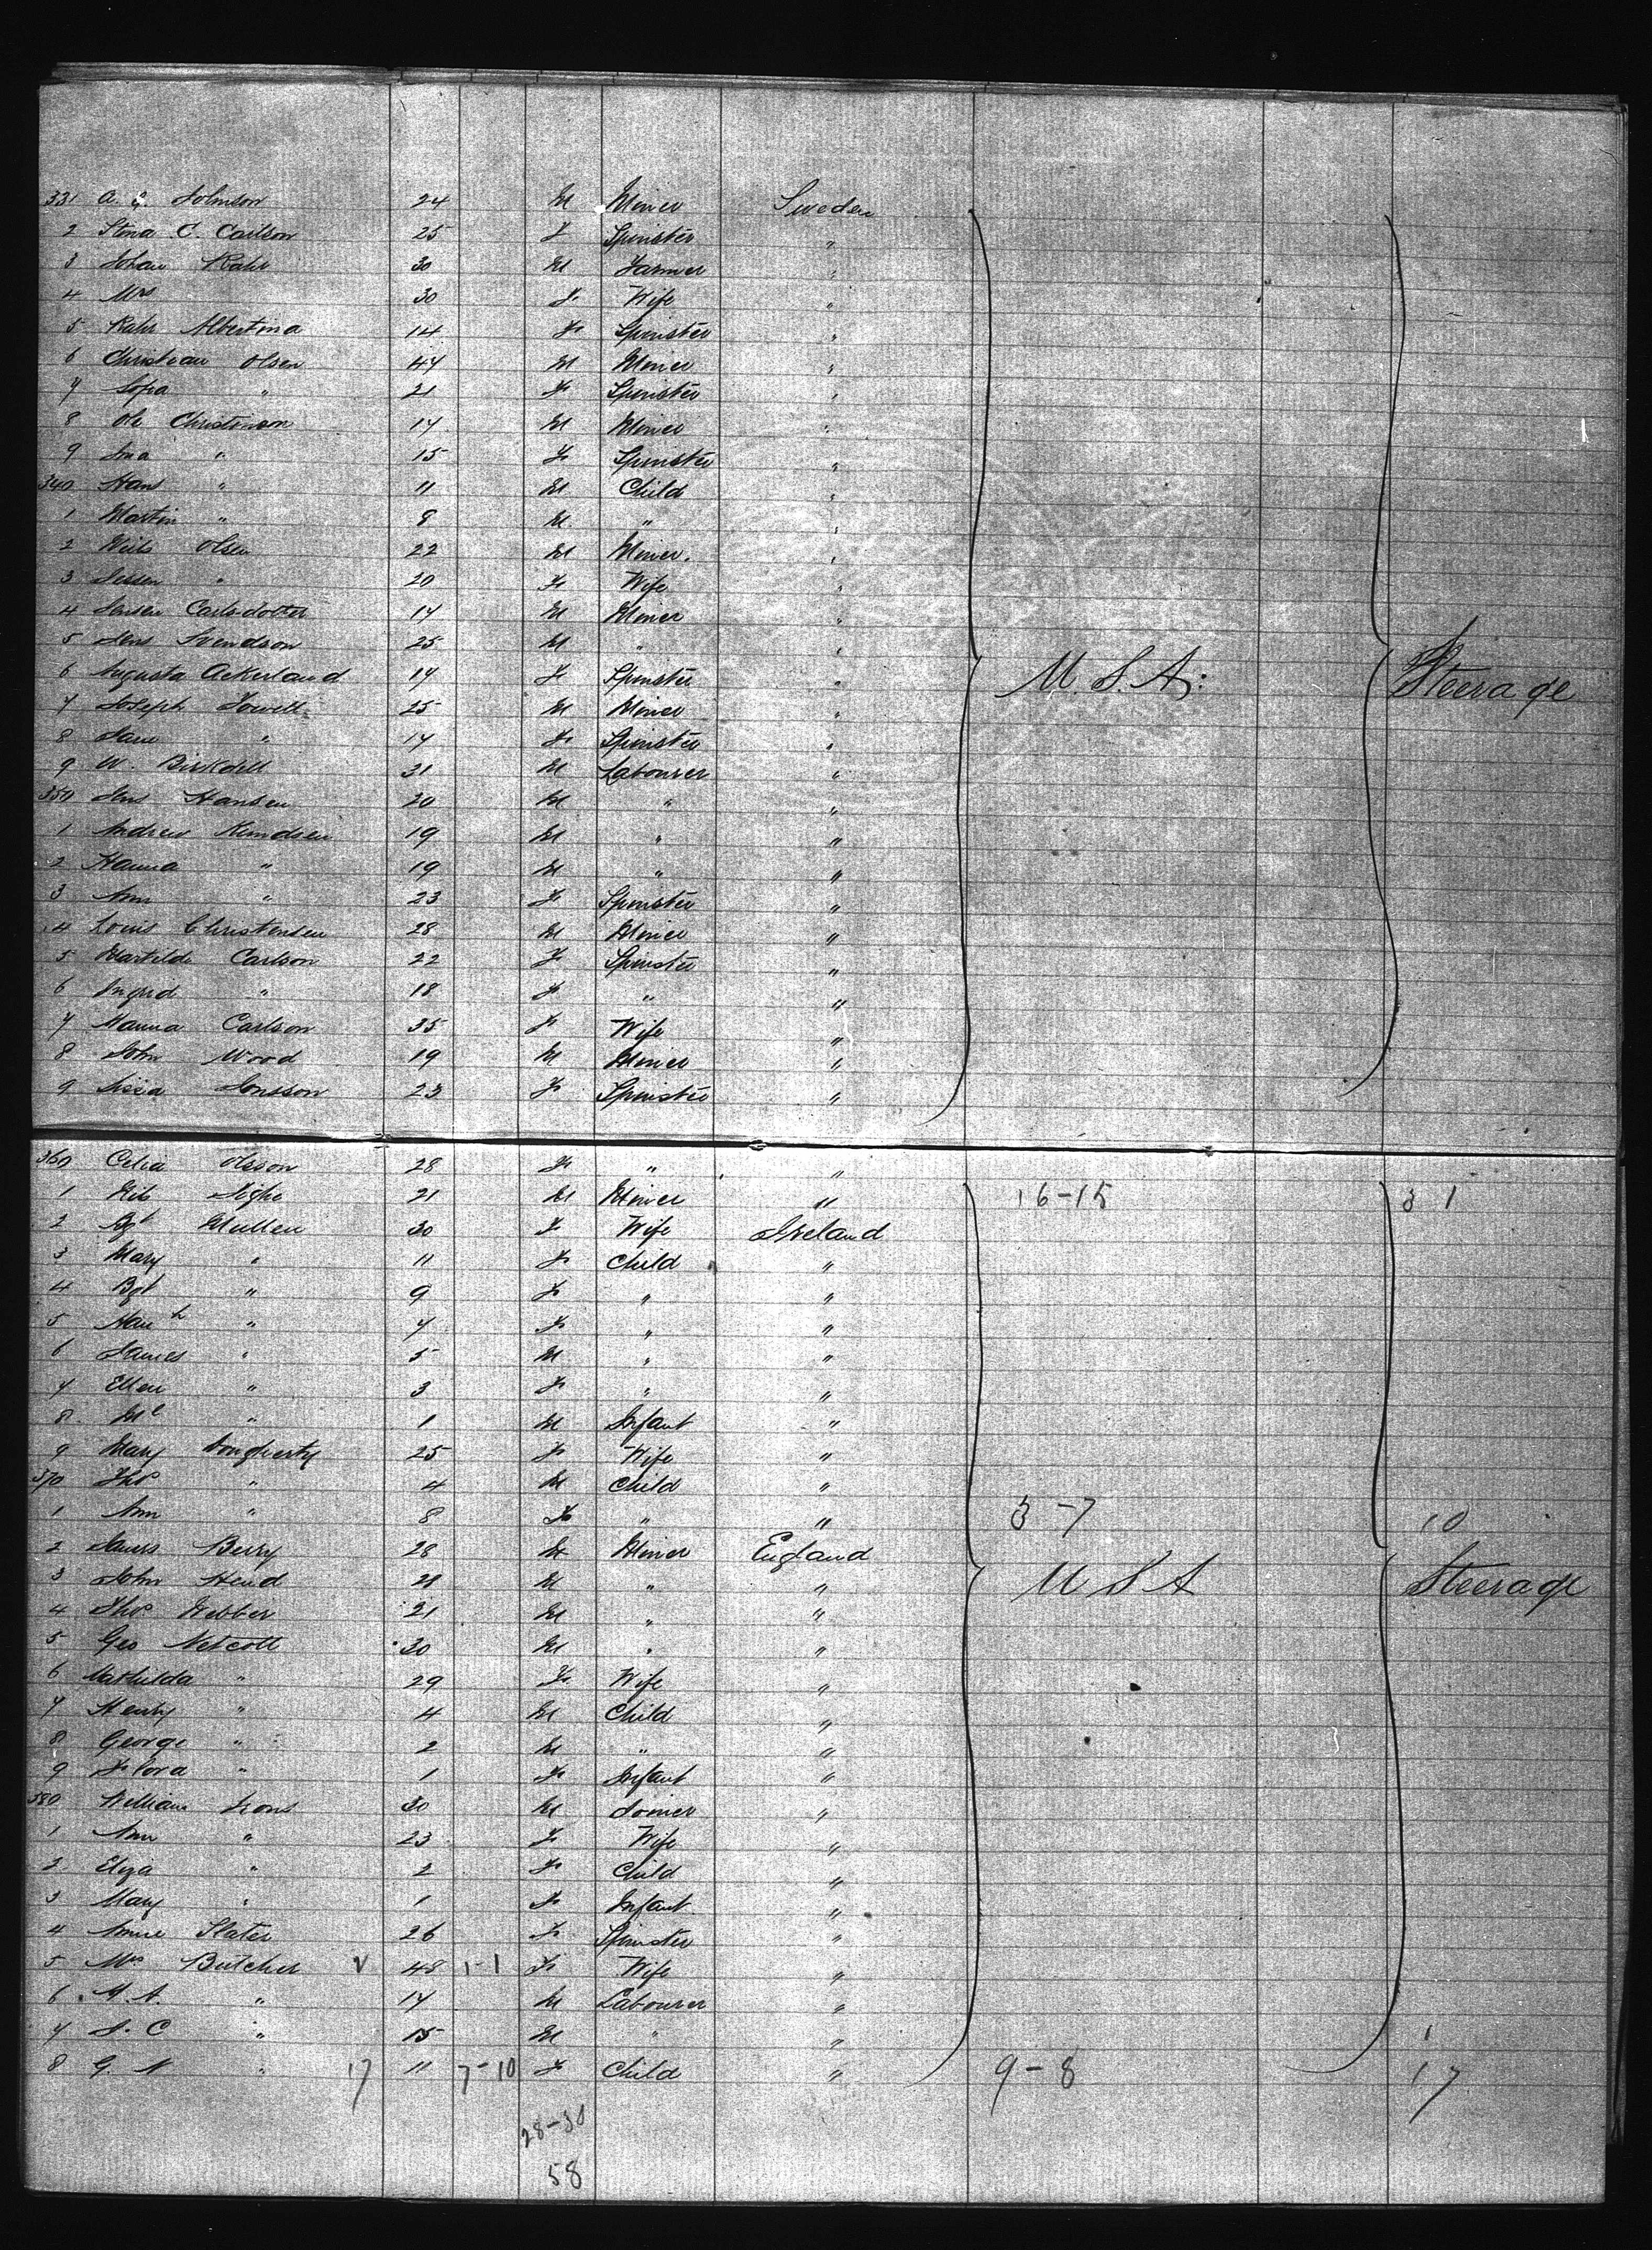 331 A. G. Johnson 24 M Miner Sweden
2 Stina C. Carlson 25 F Spinster "
3 Johan Rahr 30 M Farmer "
4 Mrs 30 F Wife "
5 Rahr Albertina 14 F Spinster "
6 Christian Olsen 47 M Miner "
7 Sofia " 21 F Spinster "
8 Ole Christinson 17 M Miner "
9 Ina " 15 F Spinster "
340 Hans " 11 M Child "
1 Martin " 8 M " "
2 Neils Olsen 22 M Miner. "
3 Jessen " 20 F Wife "
4 Jensen Carlsdotter 17 M Miner "
5 Jens Svendson 25 M " "
6 Augusta Ackerland 17 F Spinster " U.S.A: Steerage
7 Joseph Towell 25 M Miner "
8 Jane " 17 F Spinster "
9 W. Birkdell 31 M Labourer "
350 Jens Hansen 20 M " "
1 Andrew Knudsen 19 M " "
2 Hanna " 19 M " "
3 Ann " 23 F Spinster "
4 Louis Christensen 28 M Miner "
5 Matilda Carlson 22 F Spinster "
6 Ingrid " 18 F " "
7 Hanna Carlson 35 F Wife "
8 John Wood 19 M Miner "
9 Sissa Jonsson 23 F Spinster "
360 Celia Olsson 28 F " "
1 Nils 21 M Miner " 16-15 31
2 Bgt Mullen 30 F Wife Ireland
3 Mary " 11 F Child "
4 Bgt " 9 F " "
5 Hanh " 7 F " "
6 James " 5 M " "
7 Ellen " 3 F " "
8 Ml " 1 M Infant "
9 Mary Dougherty 25 F Wife "
370 Thos " 4 M Child "
1 Ann " 8 F " " 3-7 10
2 James Berry 28 M Miner England
3 John Head 21 M " " U S A Steerage
4 Thos Webber 21 M " "
5 Geo Netcott 30 M " "
6 Mathilda " 29 F Wife "
7 Henry " 4 M Child "
8 George " 2 M " "
9 Flora " 1 F Infant "
380 William Lyons 30 M Joiner "
1 Ann " 23 F Wife "
2 Eliza " 2 F Child "
3 Mary " 1 F Infant "
4 Annie Slater 26 F Spinster "
5 Mrs Butcher V 48 1-1 F Wife "
6 " 17 M Labourer "
7 J. C " 15 M " " 1
8 G. N " 17 11 7-10 F Child " 9-8 17
28-30
58